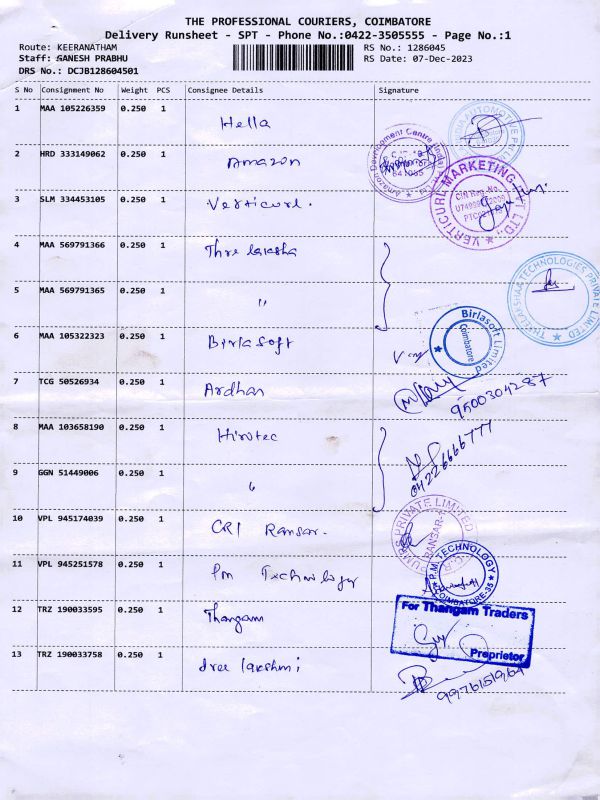 THE PROFESSIONAL COURIERS, COIMBATORE
Delivery Runsheet - SPT - Phone No.:0422-3505555 - Page No.:1
Route: KEERANATHAM
RS No.: 1286045
Staff: GANESH PRABHU
RS Date: 07-Dec-2023
DRS No.: DCJB128604501
S No Consignment No Weight PCS Consignee Details Signature
1 MAA 105226359 0.250 1 Hella
2 HRD 333149062 0.250 1 Amazon
Amazon Development Centre
3 SLM 334453105 0.250 1 Verticurl.
VERTICURL MARKETING PVT LTD.,
4 MAA 569791366 0.250 1
5 MAA 569791365 0.250 1 "
TECHNOLOGIES PRIVATE LIMITED
6 MAA 105322323 0.250 1 Birlasoft
Birlasoft Limited
Coimbatore
7 TCG 50526934 0.250 1 Ardhan
9500304287
8 MAA 103658190 1 0.250 Hirotec
04226666777
9 GGN 51449006 0.250 1 "
10 VPL 945174039 0.250 1 CRI Ransar.
PRIVATE LIMITED
11 VPL 945251578 0.250 1 Pm Technology
P.M. TECHNOLOGY
COIMBATORE-35
12 TRZ 190033595 0.250 1 Thangam
For Thangam Traders
Preprietor
13 TRZ 190033758 0.250 1 Sree lakshmi